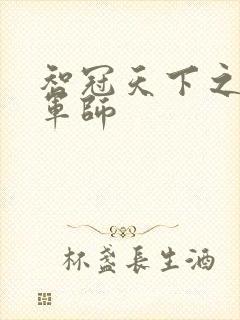 智冠天下之
軍師
杯盞長生酒